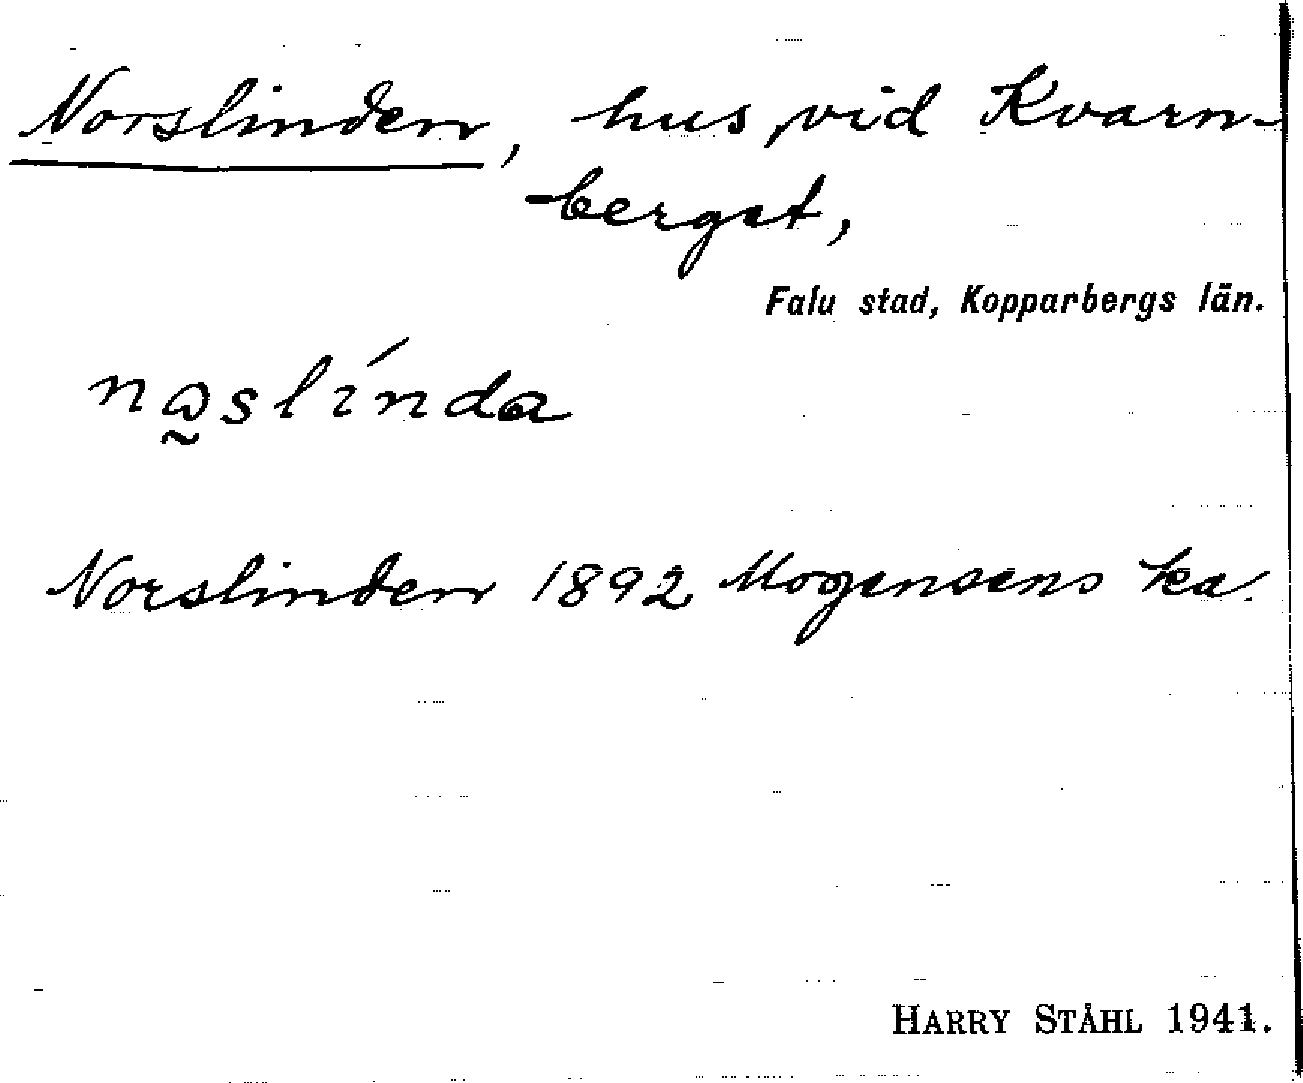 Norslinden, hus vid Kvarn-
berget,
Falu stad, Kopparbergs län.
Norslinden 1892 Mogensens ka.
HARRY STÅHL 1941.